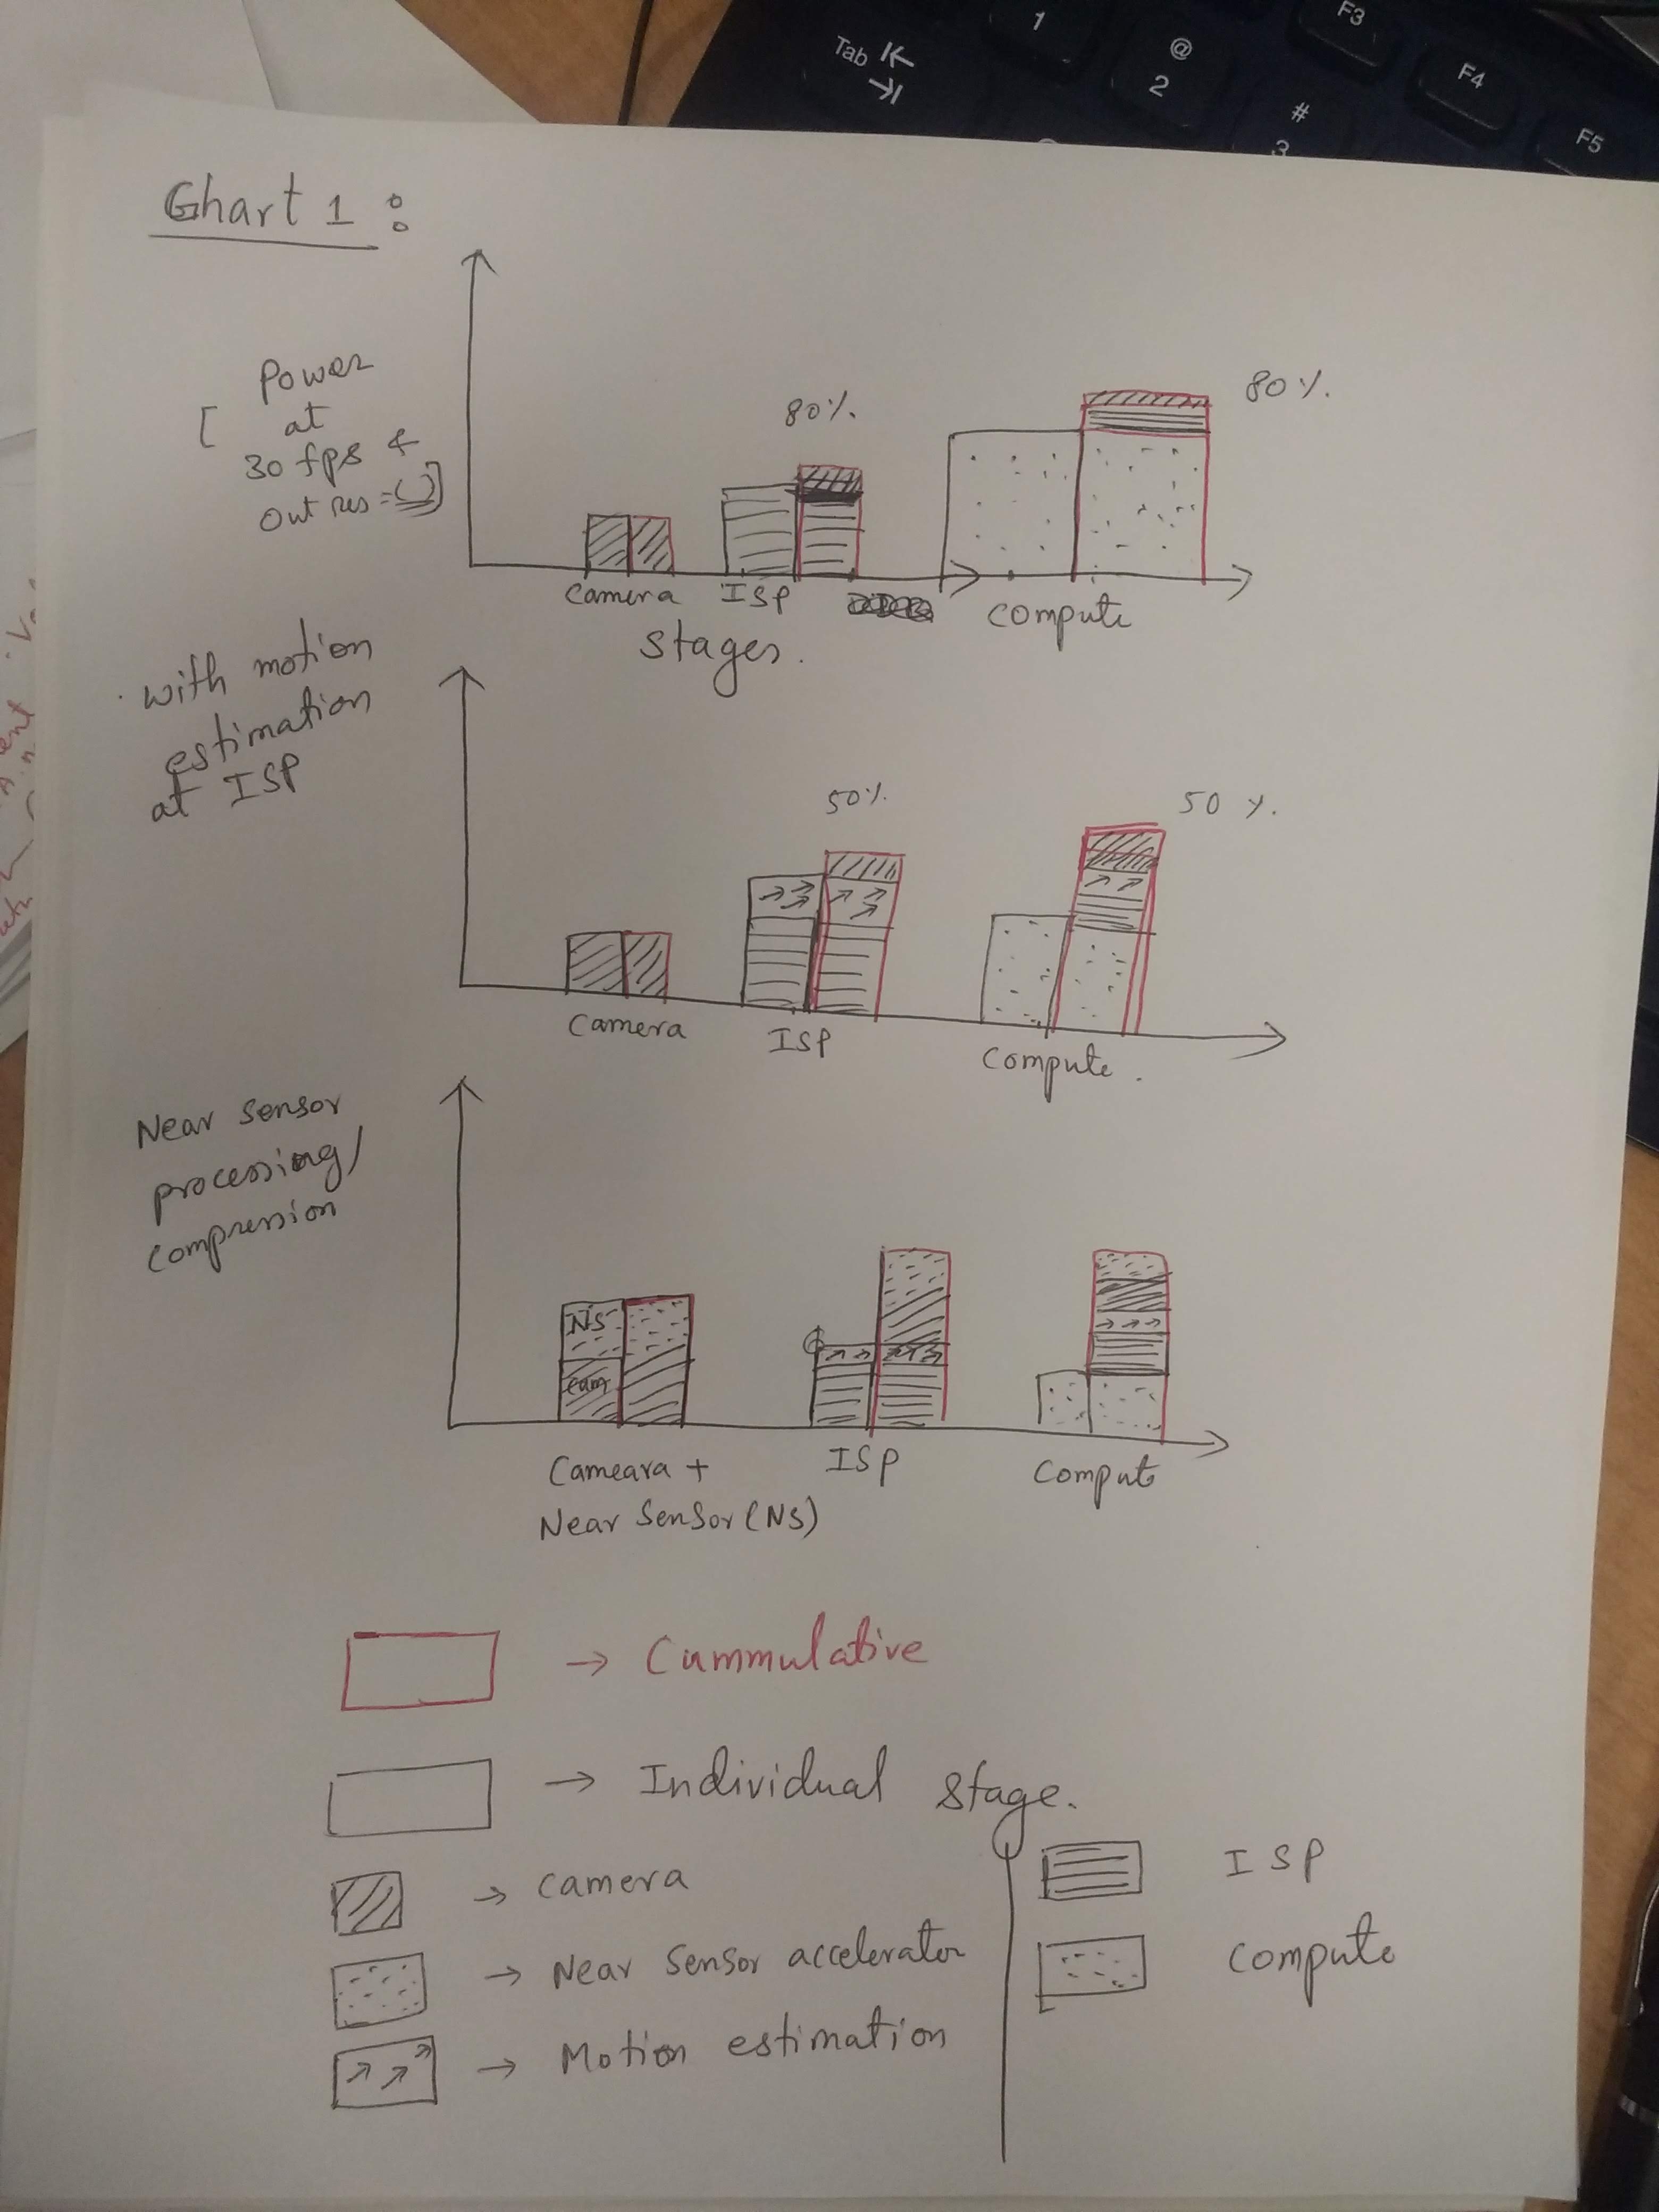 Tab
1
@
2
#
3
F3
F4
F5
Chart 1 :
[ Power
at
30 fps &
Out res = ( ) ]
80%.
80%.
Camera
ISP
Compute
Stages.
with motion
estimation
at ISP
50%.
50 %.
Camera
ISP
Compute.
Near Sensor
processing/
compression
NS
Cam
Cameara +
Near Sensor (NS)
ISP
Compute
→ Cummulative
→ Individual Stage.
→ camera
→ Near Sensor accelerator
→ Motion estimation
ISP
compute